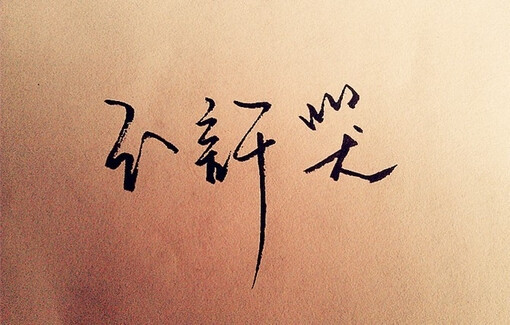 不許哭